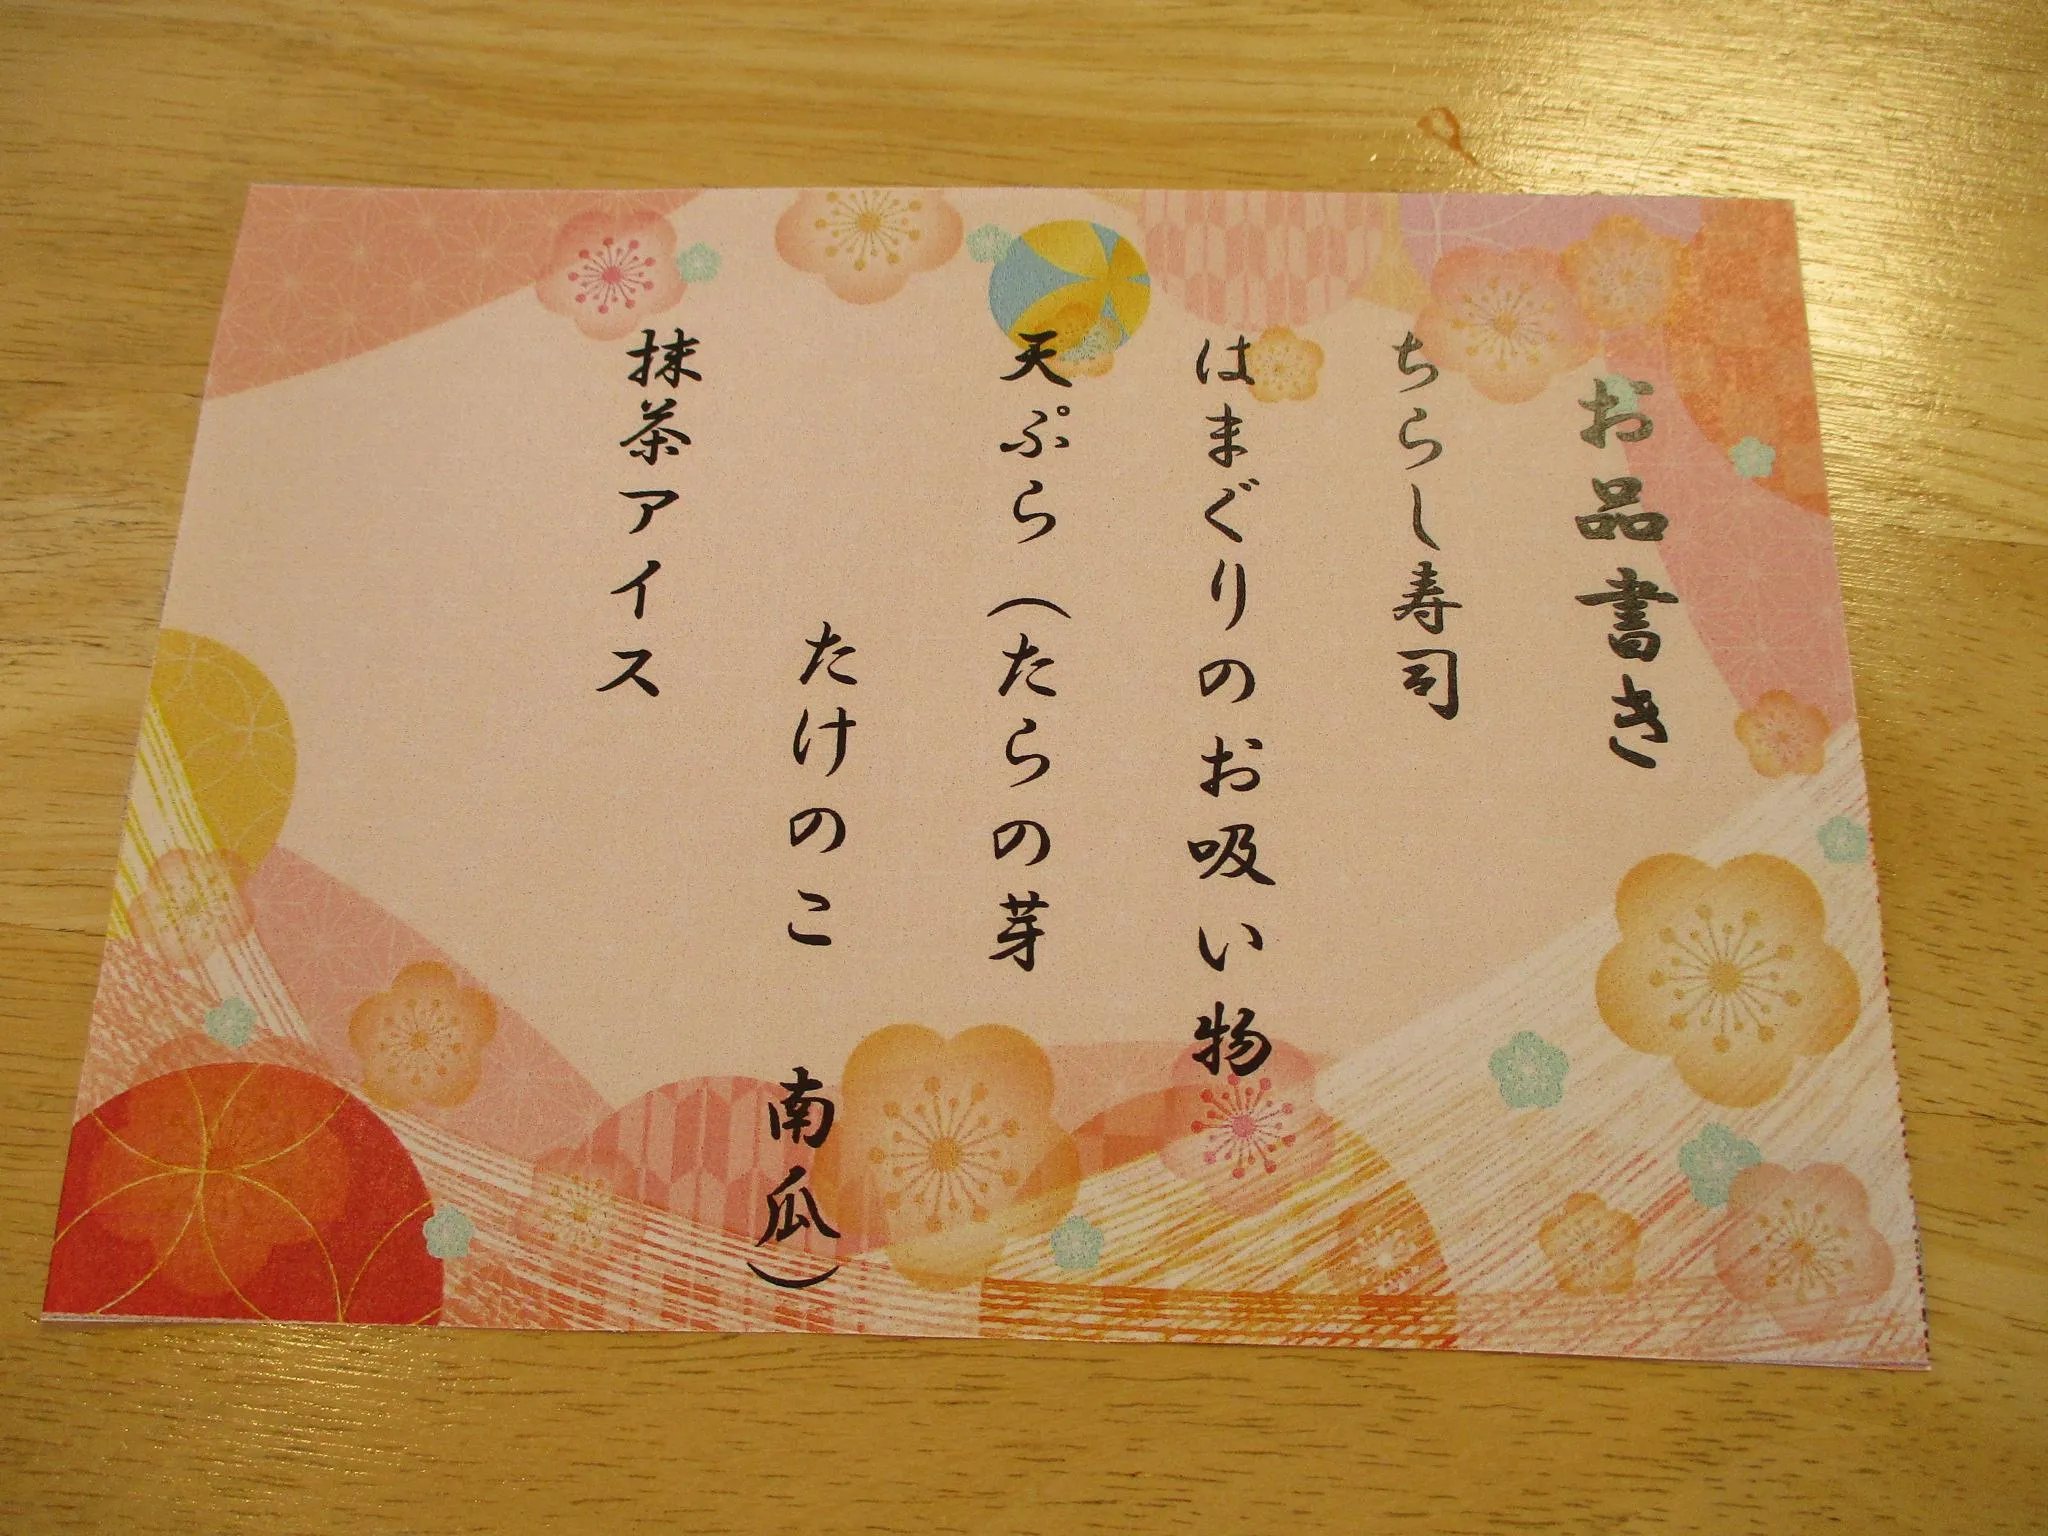 お品書き
ちらし寿司
はまぐりのお吸い物
天ぷら（たらの芽
たけのこ　南瓜）
抹茶アイス